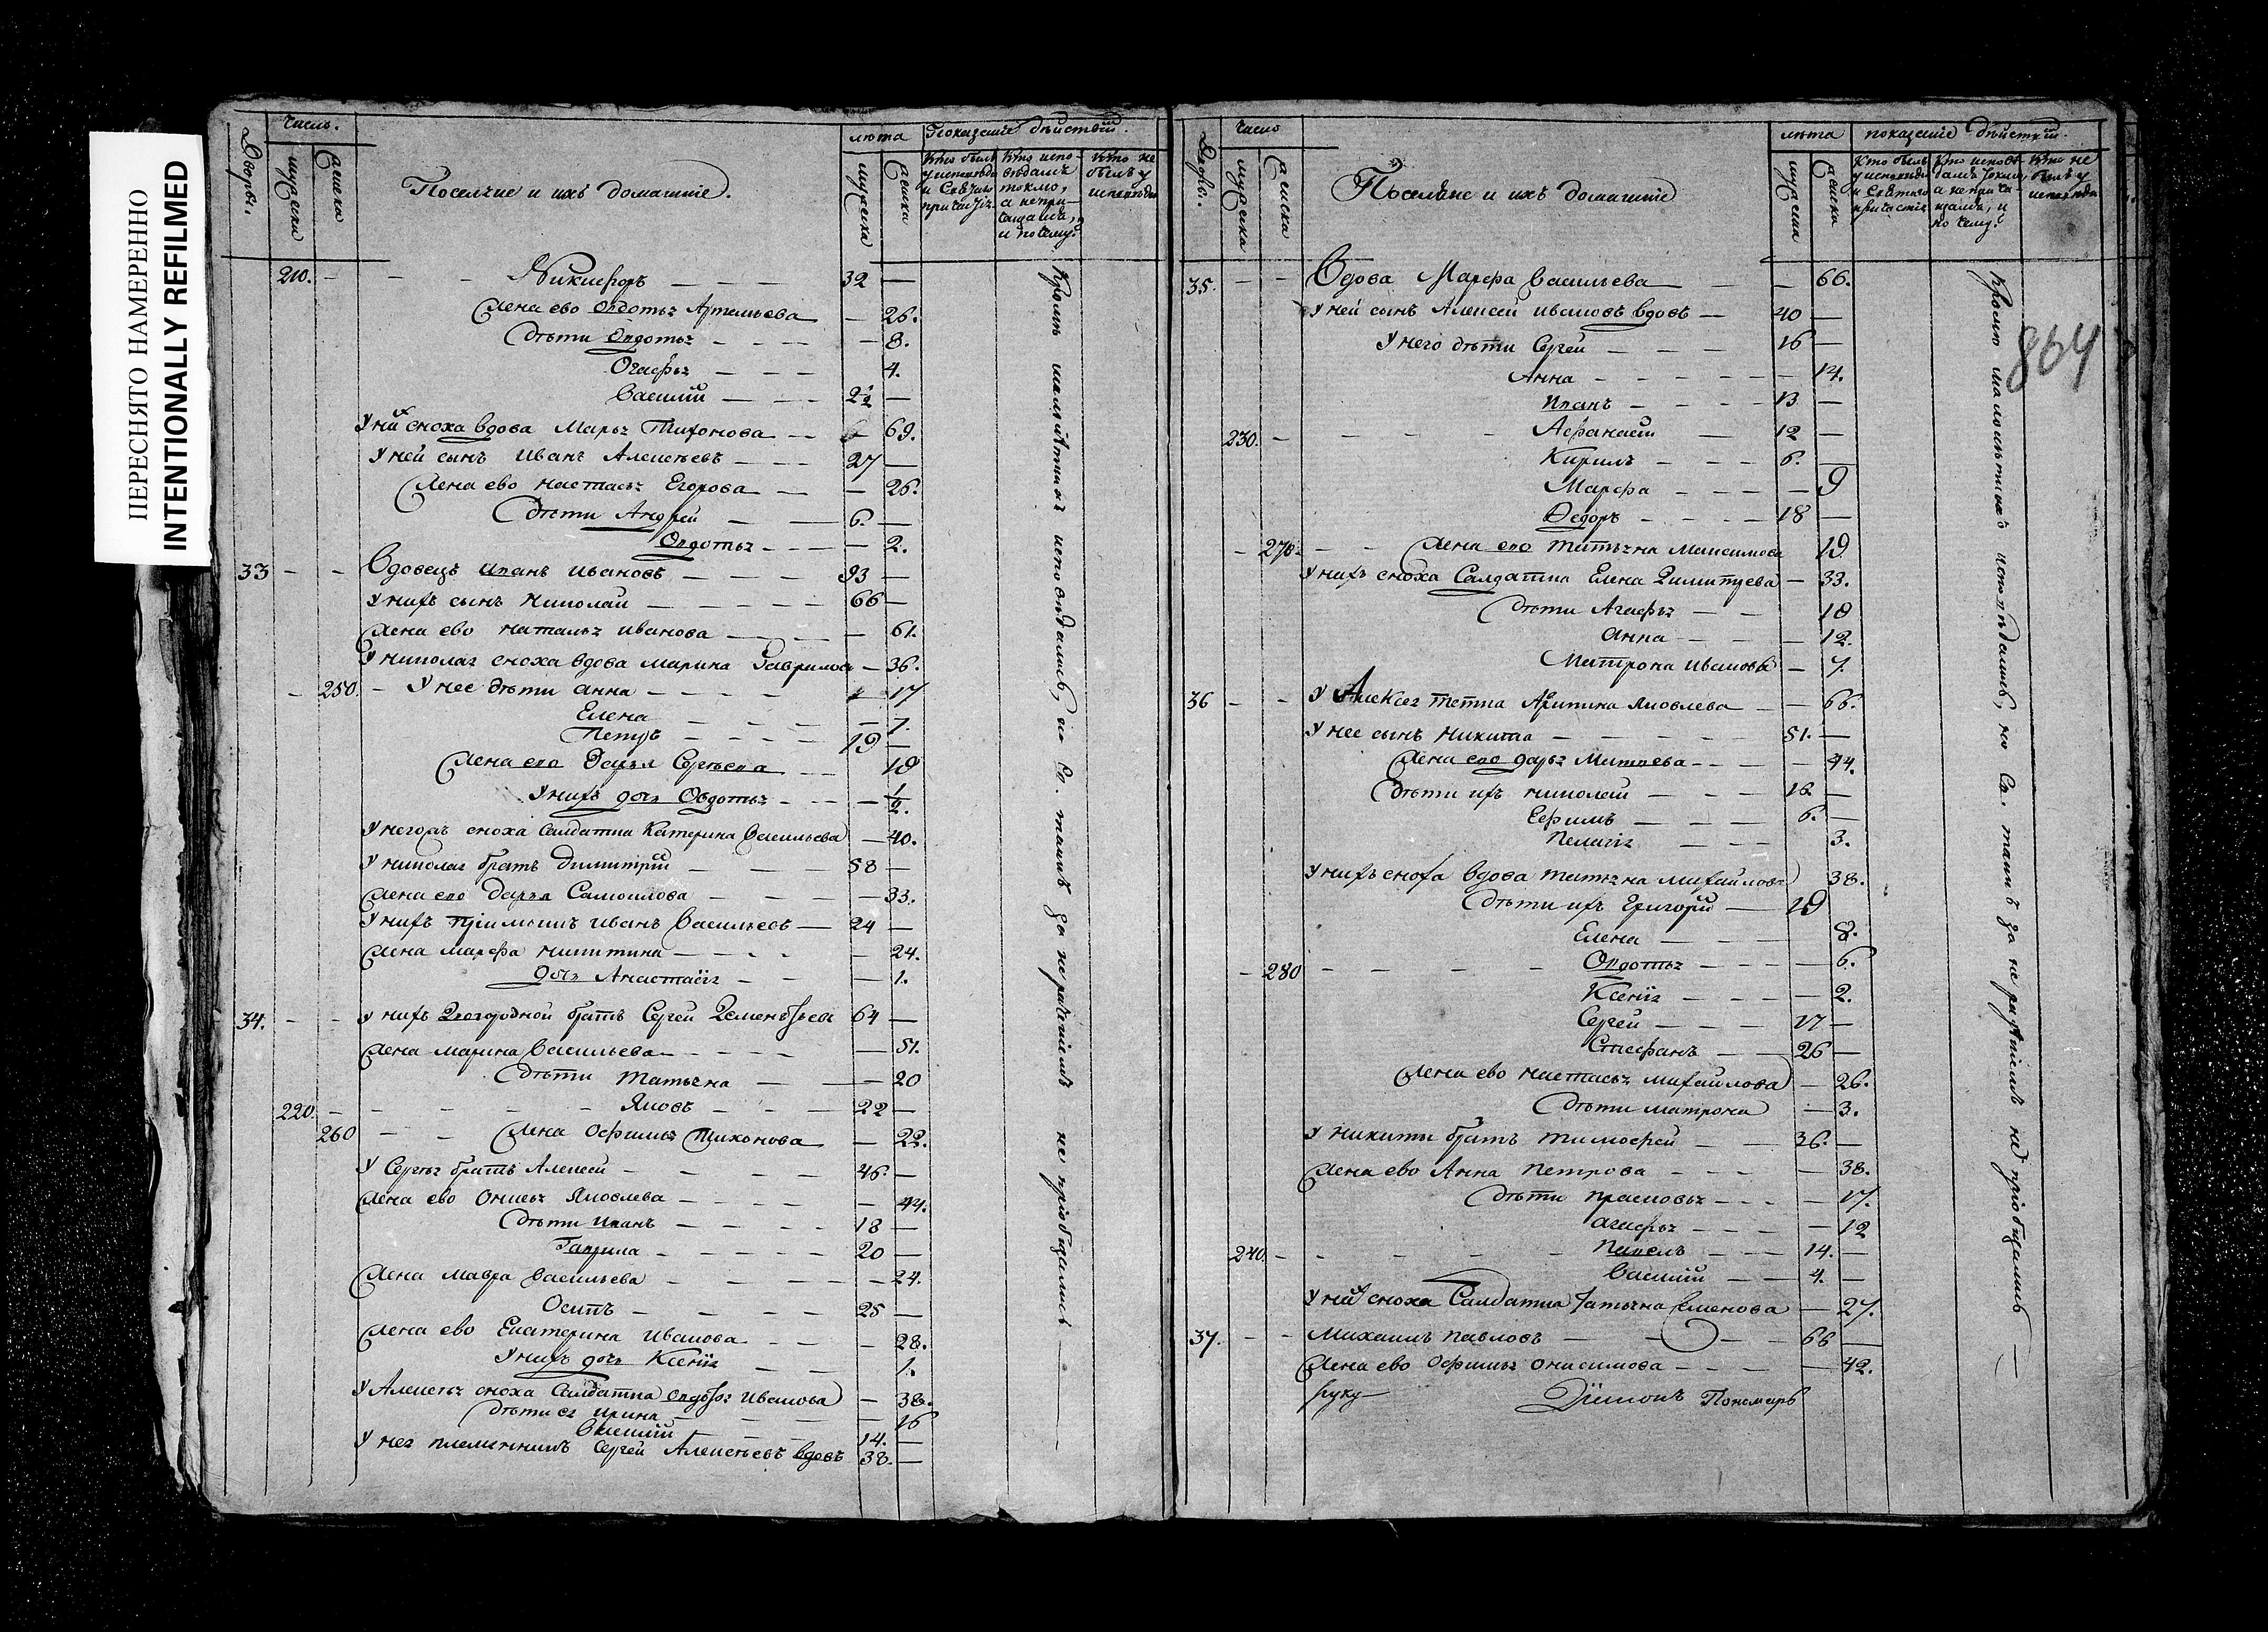 ПЕРЕСНЯТО НАМЕРЕННО
INTENTIONALLY REFILMED
Дворы.
число.
мужеска
женска
Поселяне и ихъ домашніе.
лѣта
мужеска
женска
Показаніе дѣйствій.
Кто былъ у исповѣди и Свѣтаго причастія
Кто исповѣдался токмо, а непричащался, и почему?
Кто не былъ у исповѣди
210. Никифоръ 32
Жена ево Овдотья Артемьева 26.
Дѣти Овдотья 8.
Огафья 4.
Василий 2½
У них сноха вдова Марья Тихонова 69.
У ней сынъ Иванъ Алексеевъ 27
Жена ево Настасья Егорова 26.
Дѣти Андрей 6.
Овдотья 2.
33 Вдовецъ Иванъ Ивановъ 93
У нихъ сынъ Николай 66
Жена ево Наталья Иванова 61.
У Николая сноха вдова Марина Гаврилова 36.
250. У нее дѣти Анна 17
Елена 7.
Петръ 19
Жена ево Дарья Сергѣева 19
У нихъ дочь Овдотья ½
У негожъ сноха Салдатка Катерина Васильева 40.
У Николая братъ Димитрий 58
Жена ево Дарья Самоилова 33.
У нихъ приімышъ Иванъ Васильевъ 24
Жена Марфа Никитина 24.
дочь Анастасія 1.
34. У нихъ Двоюродной братъ Сергей 64
Жена Марина Васильева 51.
Дѣти Татьяна 20
220. Яковъ 22
260 Жена Офимья Тихонова 22.
У Сергѣя братъ Алексей 46.
Жена ево Яковлева 44.
Дѣти Иванъ 18
Гаврила 20
Жена Мавра Васильева 24.
Осипъ 25
Жена ево Екатерина Иванова 28.
У нихъ дочь Ксения 1.
У Алексея сноха Салдатка Овдотья Иванова 38.
Дѣти ея Ирина 16
Василий 14.
У нея племянникъ Сергей Алексеевъ вдовъ 38.
Кромѣ малолѣтныхъ исповѣдались, но Св. таинъ за нерадѣніемъ не пріобщались
Дворы.
число
мужеска
женска
Поселяне и ихъ домашніе
лѣта
мужеска
женска
показаніе дѣйствій.
Кто былъ у исповѣди и Свѣтаго причастія
Кто исповѣдался токмо, а не причащался, и по чему?
Кто не былъ у исповѣди
864
35. Вдова Марфа Васильева 66.
У ней сынъ Алексей Ивановъ вдовъ 40
У него дѣти Сергей 16
Анна 14.
Иванъ 13
230. Афанасий 12
Кирилъ 6.
Марфа 9
Федоръ 18
270. Жена ево Татьяна Максимова 19
У нихъ сноха Салдатка Елена Димитрева 33.
Дѣти Агафья 18
Анна 12.
Матрона Иванова 7.
36 У Алексея тетка Арипина Яковлева 66.
У нее сынъ Никита 51.
Жена ево Дарья Матвѣева 44.
Дѣти ихъ Николай 12
Ефимъ 6.
Пелагія 3.
У нихъ сноха вдова Татьяна Михайлова 38.
Дѣти ихъ Григорій 19
Елена 8.
280 Овдотья 6.
Ксенія 2.
Сергей 17
Стефанъ 26
Жена ево Настасья Михайлова 26.
Дѣти Матрона 3.
У Никиты братъ Тимофей 36.
Жена ево Анна Петрова 38.
Дѣти Прасковья 17.
Агафья 12
240. Павелъ 14.
Василий 4.
У них сноха Салдатка Татьяна Семенова 27.
37. Михаилъ Павловъ 66
Жена ево Офимья Онисимова 42.
руку Пономарь
Кромѣ малолѣтныхъ исповѣдались, но Св. таинъ за нерадѣніемъ не пріобщались